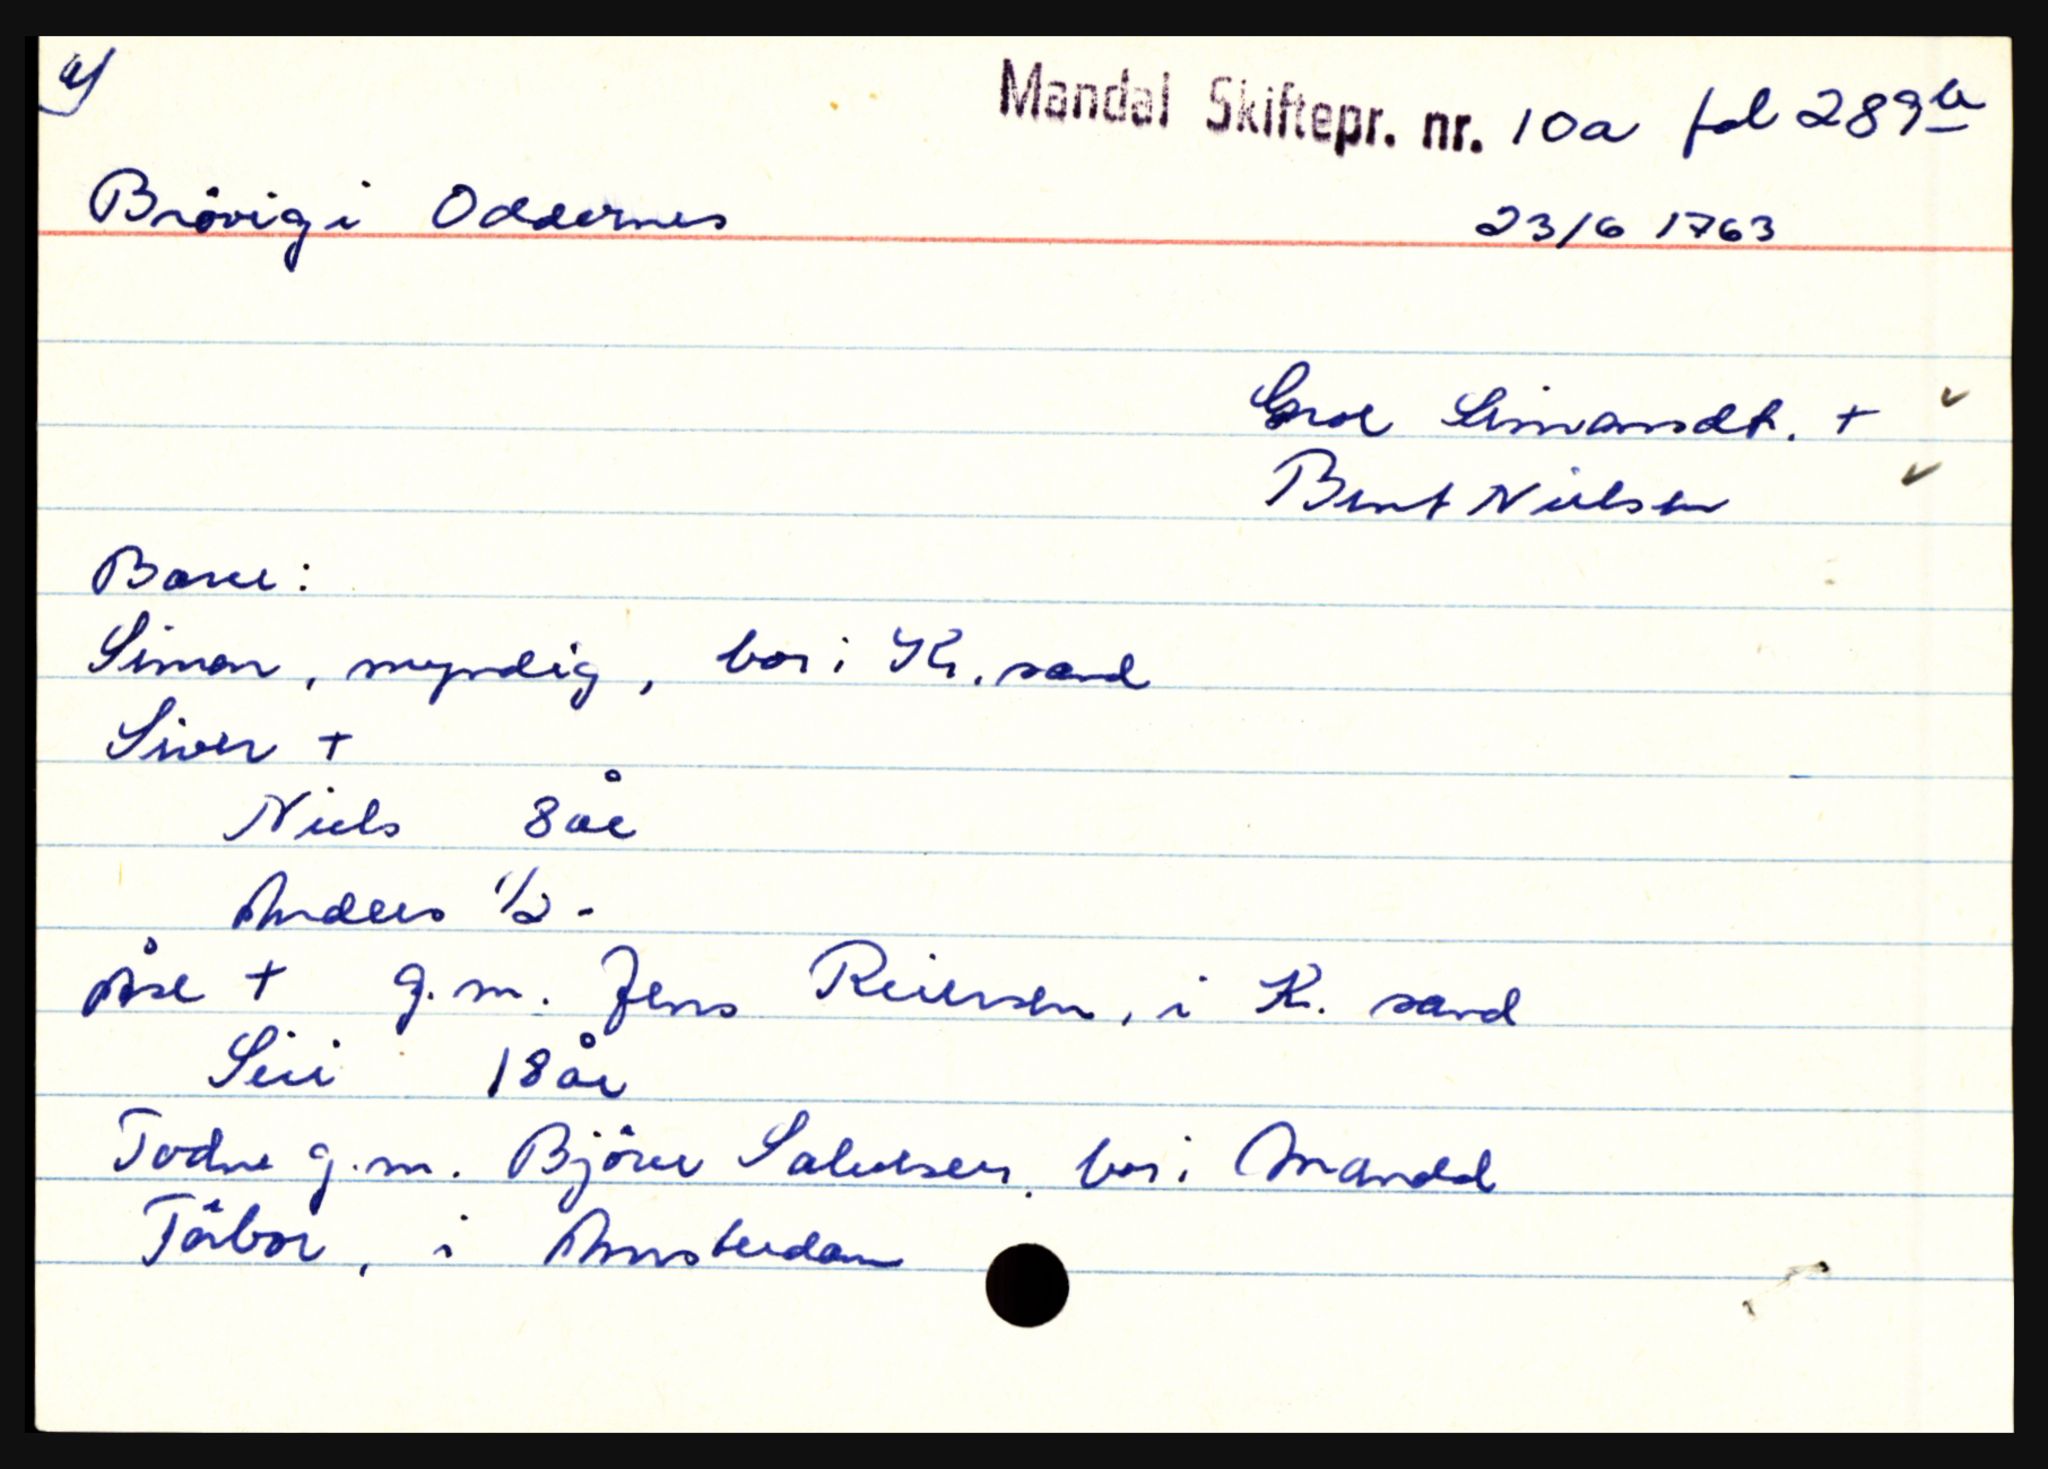 Mandal Skiftepr. nr. 10a fol 289b
Brövig i Oddernes 23/6 1763
Groe Simonsdt. +
Bent Nielsen
Barn:
Simon, myndig, bor i Kr. sand
Siver +
Niels 8 år
Anders 1/2 -
Åse + g.m. Jens Reiersen, i K. sand
Siri 18 år
Todne g.m. Björn Salvesen, bor i Mandal
Tårbor, i Amsterdam